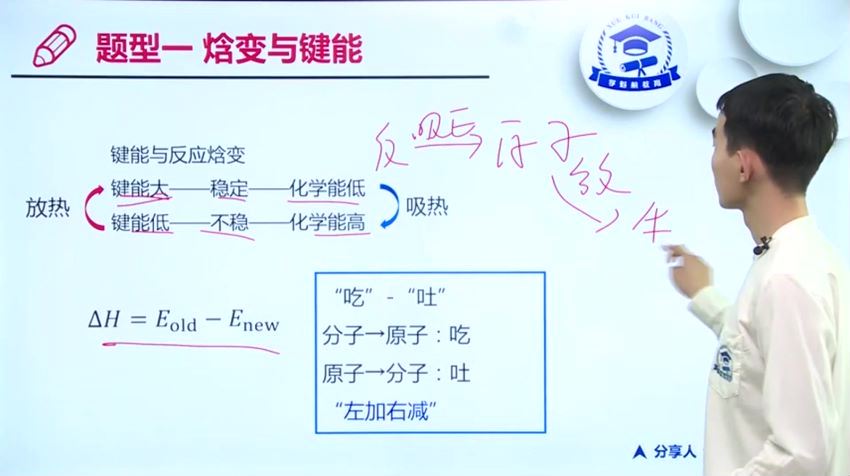 题型一 焓变与键能
YUE KUI BANG
学魁榜教育
键能与反应焓变
放热
键能大——稳定——化学能低
键能低——不稳——化学能高
吸热
反 吸 原子
放
生
ΔH = Eold − Enew
“吃”-“吐”
分子→原子：吃
原子→分子：吐
“左加右减”
分享人